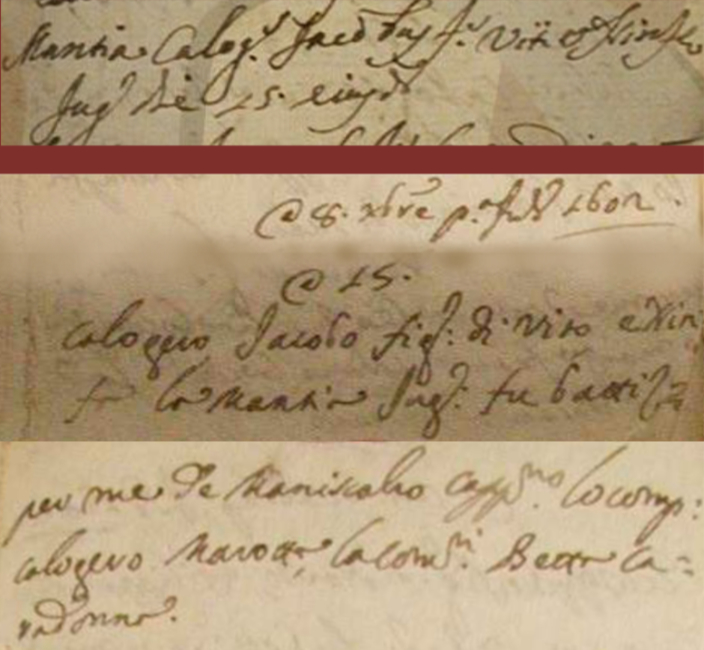 Mantia Calog.^s Jacobus f.^s Viti et Ninf
Jug^l die 15. eiusd^m
@ 8. xbre p.^a Jnd. 1602.
@ 15.
Calogero Jacobo figl: di Vito e Nin
fa la Mantia Jugl. fu batti
per me De Maniscalco Capp^no lo comp:
calogero Marotta la com^ri: Betta Ca=
radonna.